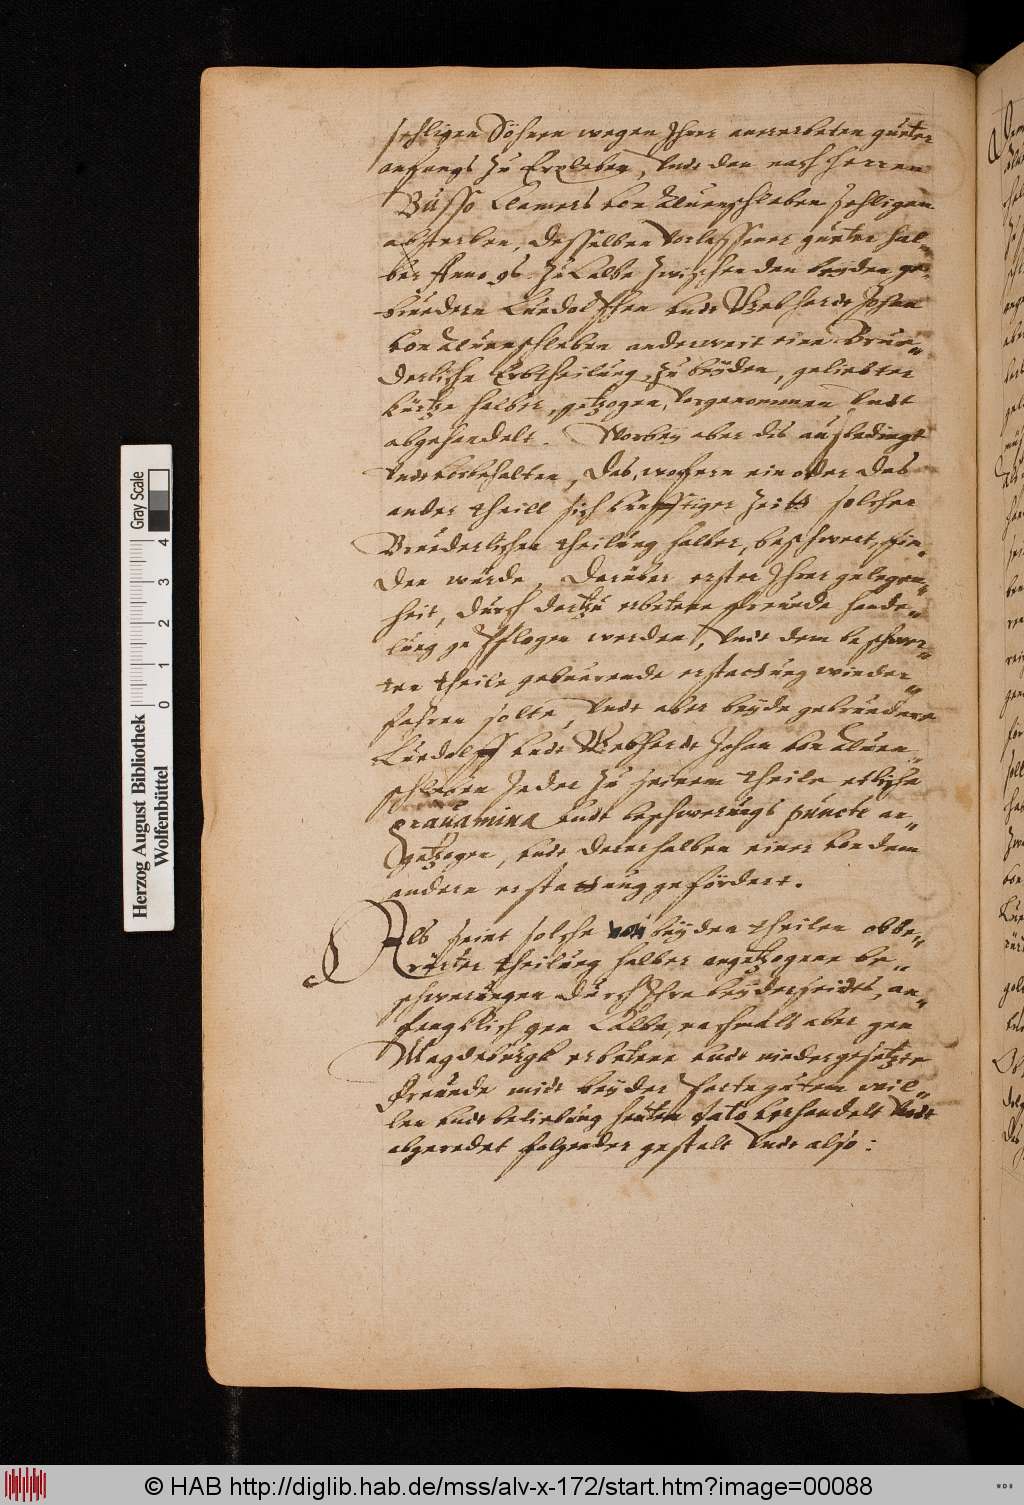 sehligen Söhnen wegen Ihrer anererbeten gueter
anfangs zu Erxleben, Undt dan nach Herren
Busso Clamers von Aluenschleben sehligen
absterben, desselben Verlassener gueter hal„
ber Anno 96. zu Calbe zwischen den beyden ge„
bruedern Luedolffen undt Gebhardt Johan
von Aluenschleben anderwert eine Brue„
derliche Erbtheilung, zu beyden, geliebter
Kürtze halber, getzogen, Vorgenommen Undt
abgehandelt. Worbey aber dis ausbedingt
Undt vorbehalten, Das, wofern ein oder das
ander theill sich kunfftiger Zeitt solcher
Bruederlichen theilung halber, beschwert, fin„
den würde, Darüber erster Ihrer gelegen„
heit, durch dartzu erbetene Freunde hande„
lung gepflogen werden, Undt dem beschwer„
ten theile gebuerende erstattung wieder„
fahren solte, Undt aber beyde gebruedere
Luedolff undt Gebhardt Johan von Aluen„
schleben Jeder zu seinem theile etliche
grauamina undt beschwerungs puncte an„
getzogen, undt derenhalben einer von dem
andern erstattung gefördert.
Als seint solche von beyden theilen obbe„
rürter theilung halber angetzogene be„
schwerungen durch Ihre beyderseidts, an„
fenglich gen Calbe, nachmals aber gen
Magdeburgk erbetene undt niedergesetzte
Freunde midt beyder Parte gutem wil„
len undt beliebung heuten dato verhandelt Undt
abgeredet folgender gestalt Undt also:
Herzog August Bibliothek
Wolfenbüttel
0 1 2 3 4
Gray Scale
© HAB http://diglib.hab.de/mss/alv-x-172/start.htm?image=00088